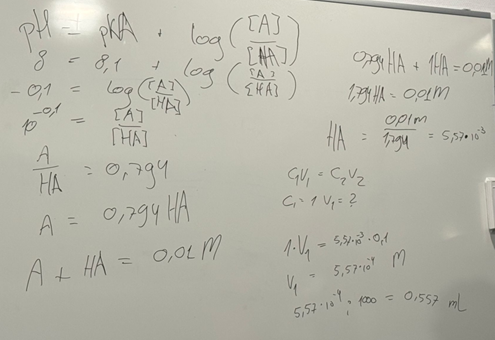 pH = pKA + log([A]/[HA])
8 = 8,1 + log([A]/[HA])
-0,1 = log([A]/[HA])
10^-0,1 = [A]/[HA]
A/HA = 0,794
A = 0,794 HA
A + HA = 0,01 M
0,794 HA + 1HA = 0,01M
1,794 HA = 0,01M
HA = 0,01M/1,794 = 5,57·10^-3
C1V1 = C2V2
C1 = 1 V1 = ?
1·V1 = 5,57·10^-3·0,1
V1 = 5,57·10^-4 M
5,57·10^-4 : 1000 = 0,557 mL